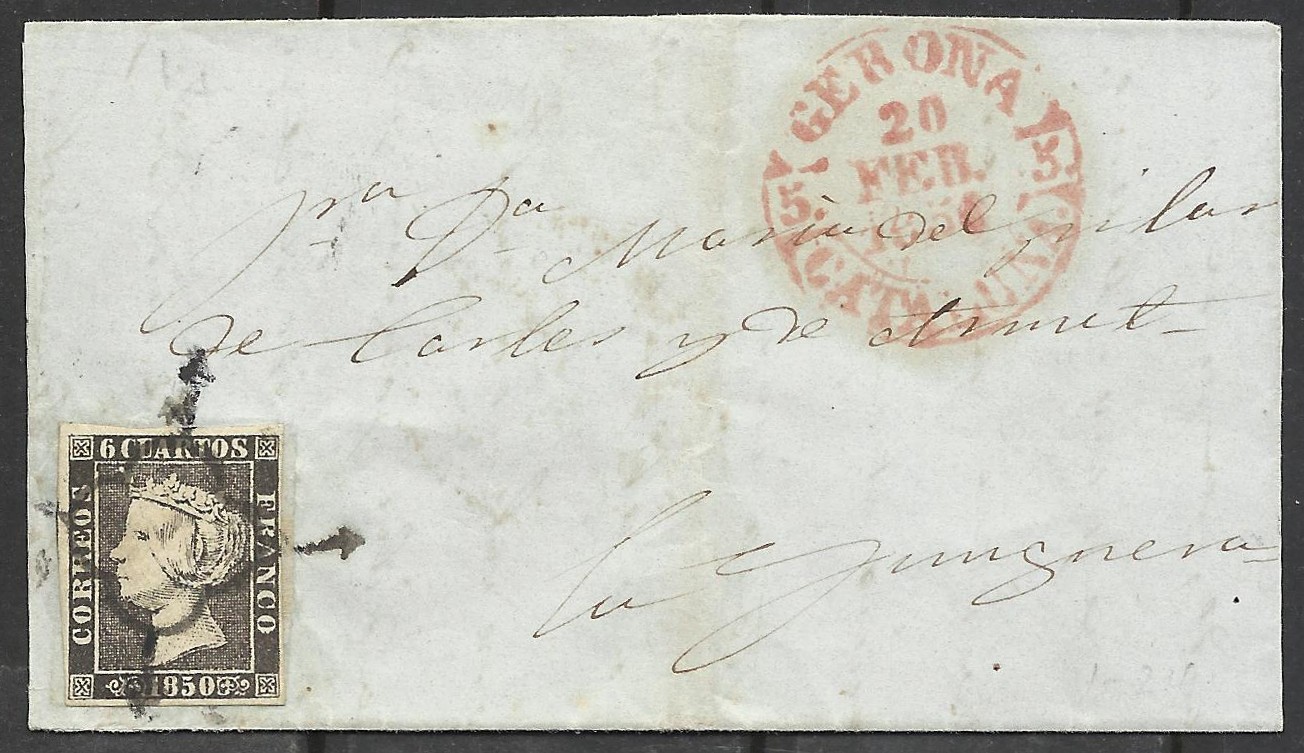 GERONA
20
FEB.
1850
5. 5.
CATALUÑA.
Sra Da Maria del pilar
de Carles y de
la Junquera
6 CUARTOS
CORREOS
FRANCO
1850